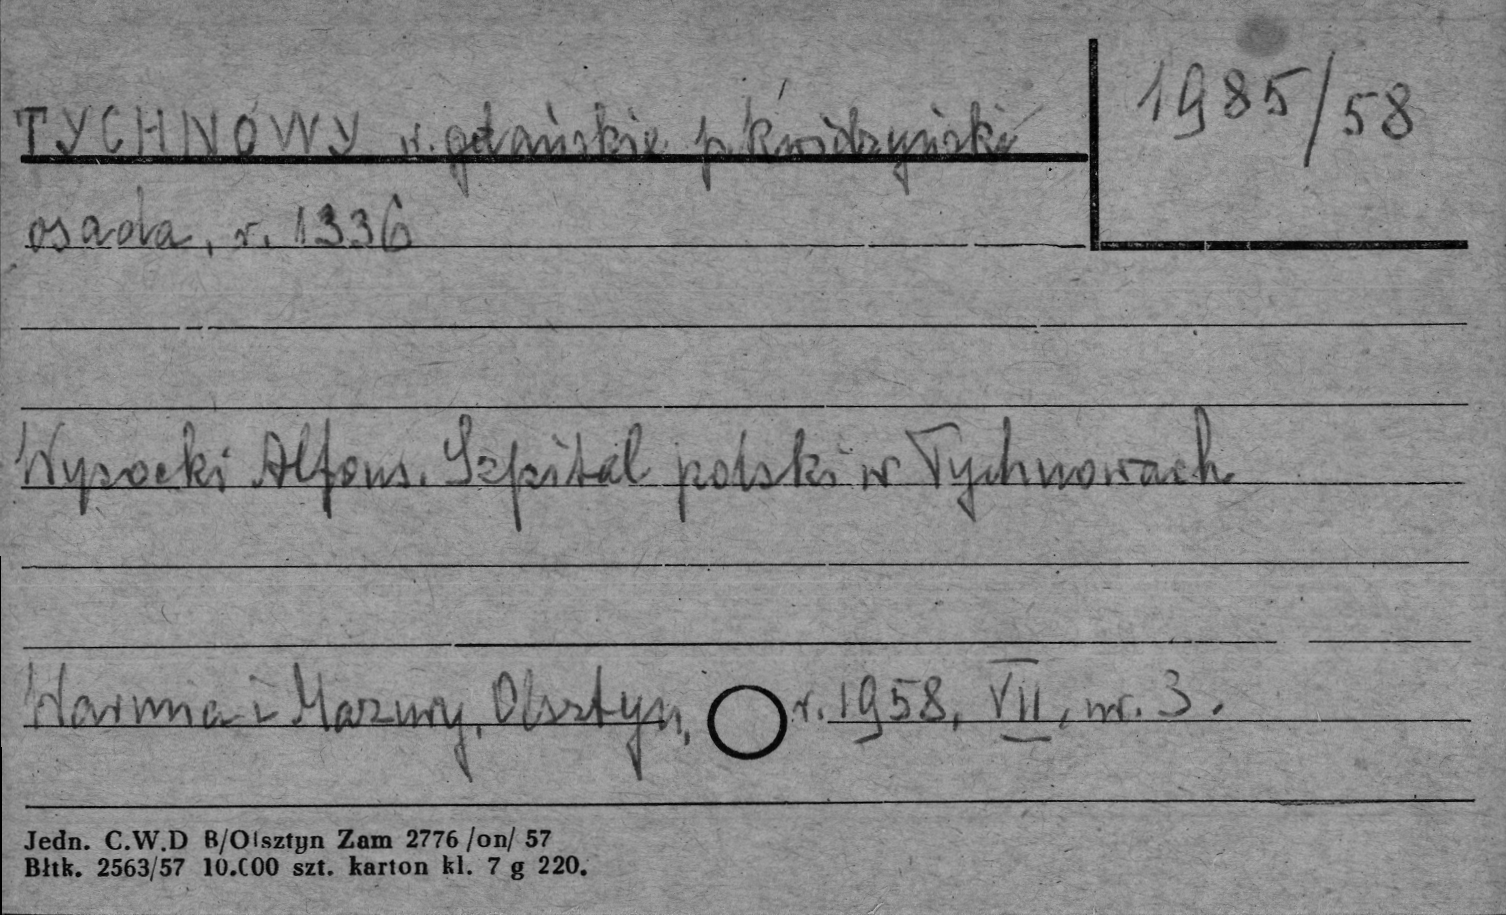 TYCHNOWY w. gdańskie p. kwidzyński
1985/58
osada, r. 1336
Wysocki Alfons. Szpital polski w Tychnowach
Warmia i Mazury, Olsztyn, r. 1958, VII, nr. 3.
Jedn. C.W.D B/Olsztyn Zam 2776 /on/ 57
Błtk. 2563/57 10.000 szt. karton kl. 7 g 220.